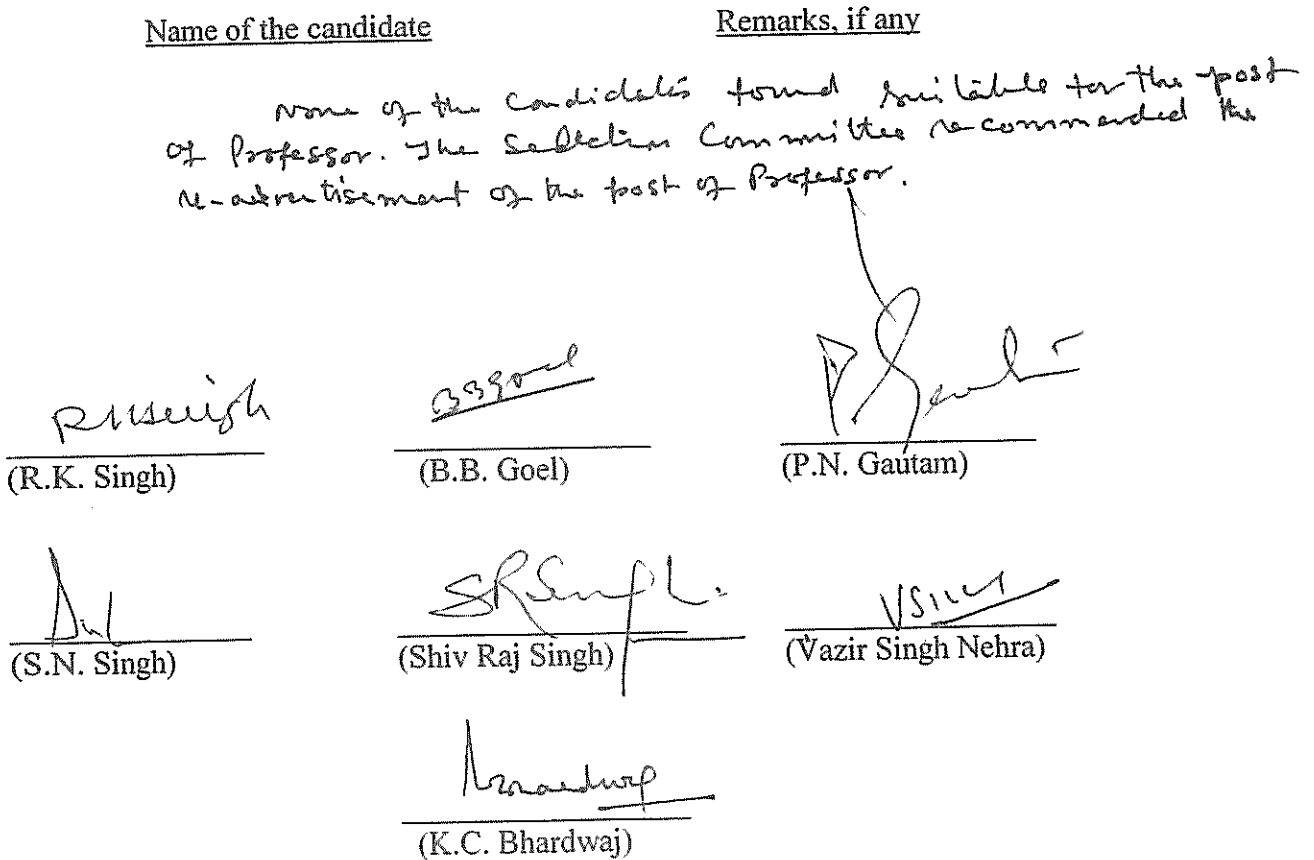 Name of the candidate Remarks, if any
None of the Candidates found suitable for the post
of Professor. The Selection Committee recommended the
re-advertisement of the post of Professor.
RKSingh BBGoel P Gautam
(R.K. Singh) (B.B. Goel) (P.N. Gautam)
SRSingh.
(S.N. Singh) (Shiv Raj Singh) (Vazir Singh Nehra)
(K.C. Bhardwaj)